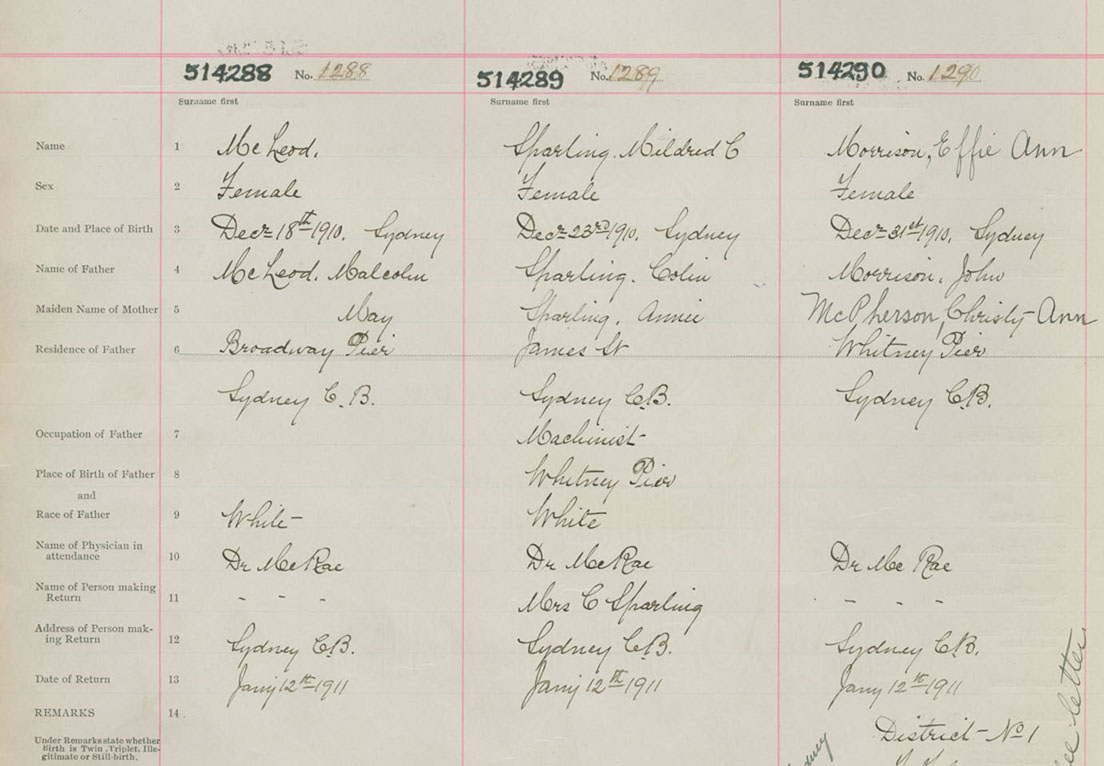 514288 No. 1288 514289 No. 1289 514290 No. 1290
Surname first Surname first Surname first
Name 1 McLeod. Sparling. Mildred C Morrison, Effie Ann
Sex 2 Female Female Female
Date and Place of Birth 3 Decr 18th 1910. Sydney Decr 23rd 1910. Sydney Decr 31st 1910. Sydney
Name of Father 4 McLeod. Malcolm Sparling. Colin Morrison, John
Maiden Name of Mother 5 May Sparling. Annie McPherson, Christy Ann
Residence of Father 6 Broadway Pier James St Whitney Pier
Sydney C.B. Sydney C.B. Sydney C.B.
Occupation of Father 7 Machinist
Place of Birth of Father 8 Whitney Pier
and
Race of Father 9 White White
Name of Physician in
attendance 10 Dr McRae Dr McRae Dr McRae
Name of Person making
Return 11 - - - Mrs C Sparling - - -
Address of Person mak-
ing Return 12 Sydney C.B. Sydney C.B. Sydney C.B.
Date of Return 13 Jany 12th 1911 Jany 12th 1911 Jany 12th 1911
REMARKS 14
District No 1
Under Remarks state whether
Birth is Twin, Triplet, Ille-
gitimate or Still-birth.
letter